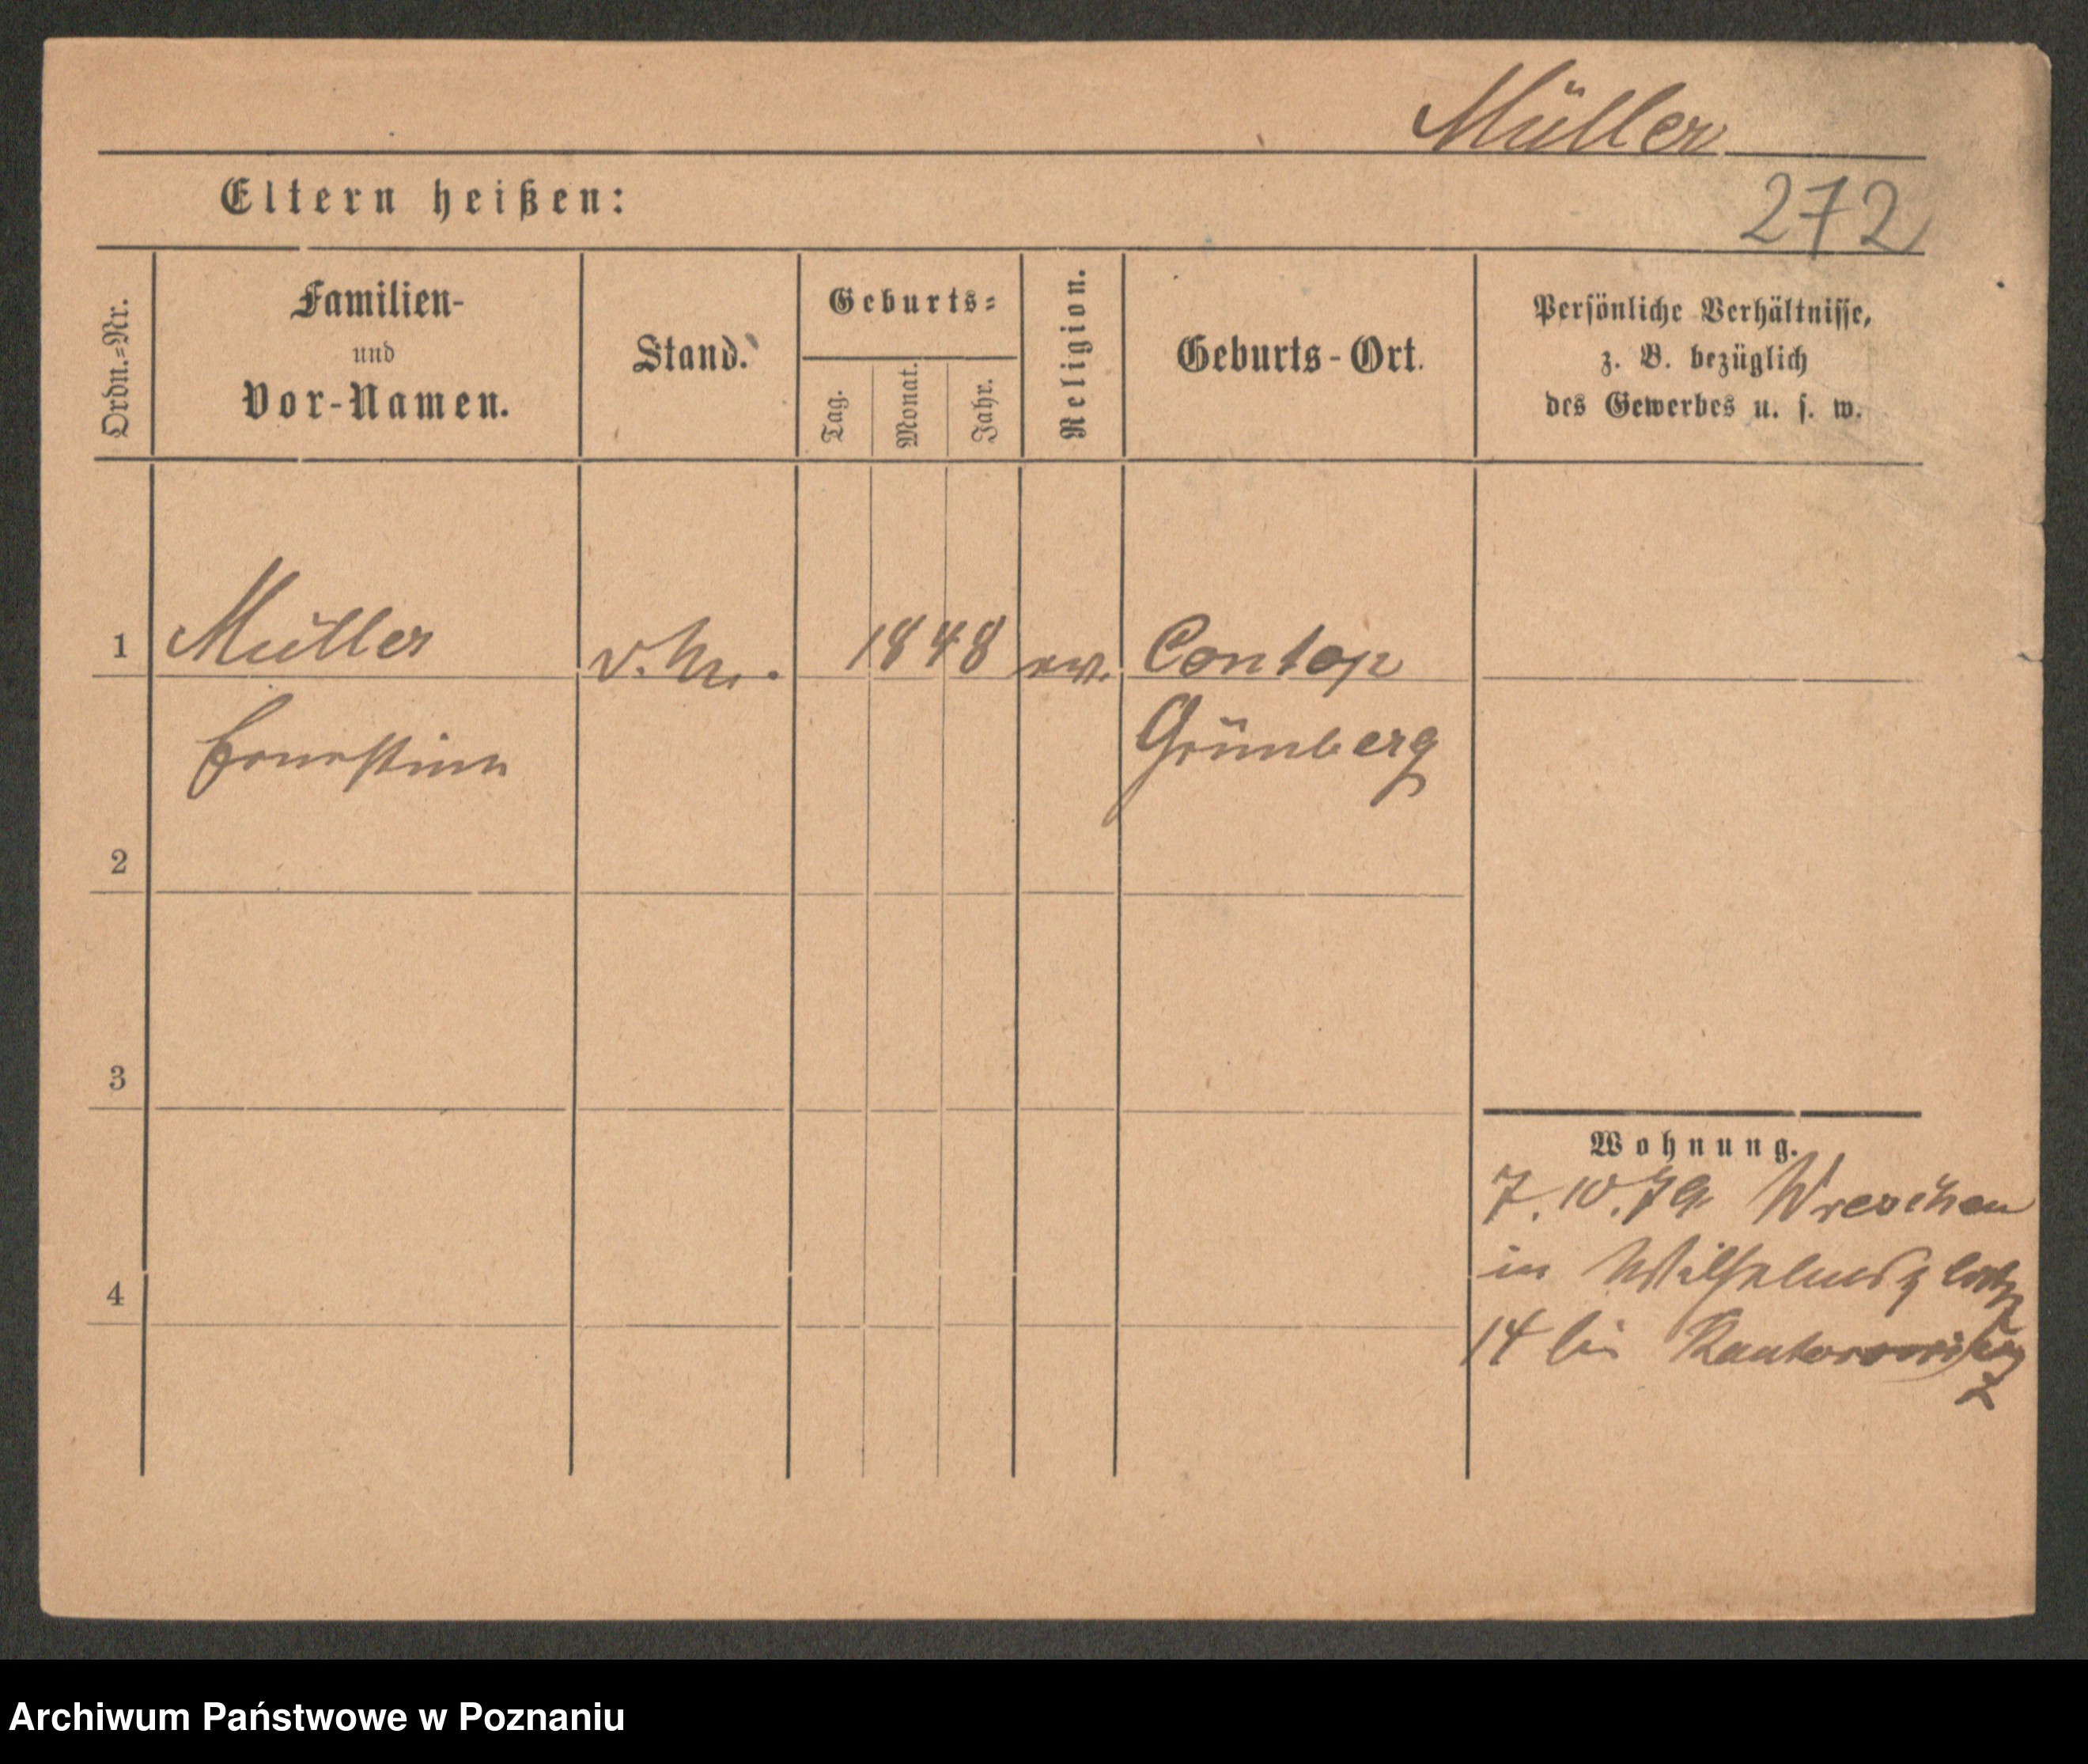 Müller
Eltern heißen:
272
Ordn.=Nr.
Familien-
und
Vor-Namen.
Stand.
Geburts=
Tag.
Monat.
Jahr.
Religion.
Geburts-Ort.
Persönliche Verhältnisse,
z. B. bezüglich
des Gewerbes u. s. w.
1 Müller 1848 ev. Contop
Ernestine Grünberg
2
3
4
Wohnung.
7.10.79 Wreschen
in Wilhelmsplatz
14 bei Kantorowicz
Archiwum Państwowe w Poznaniu